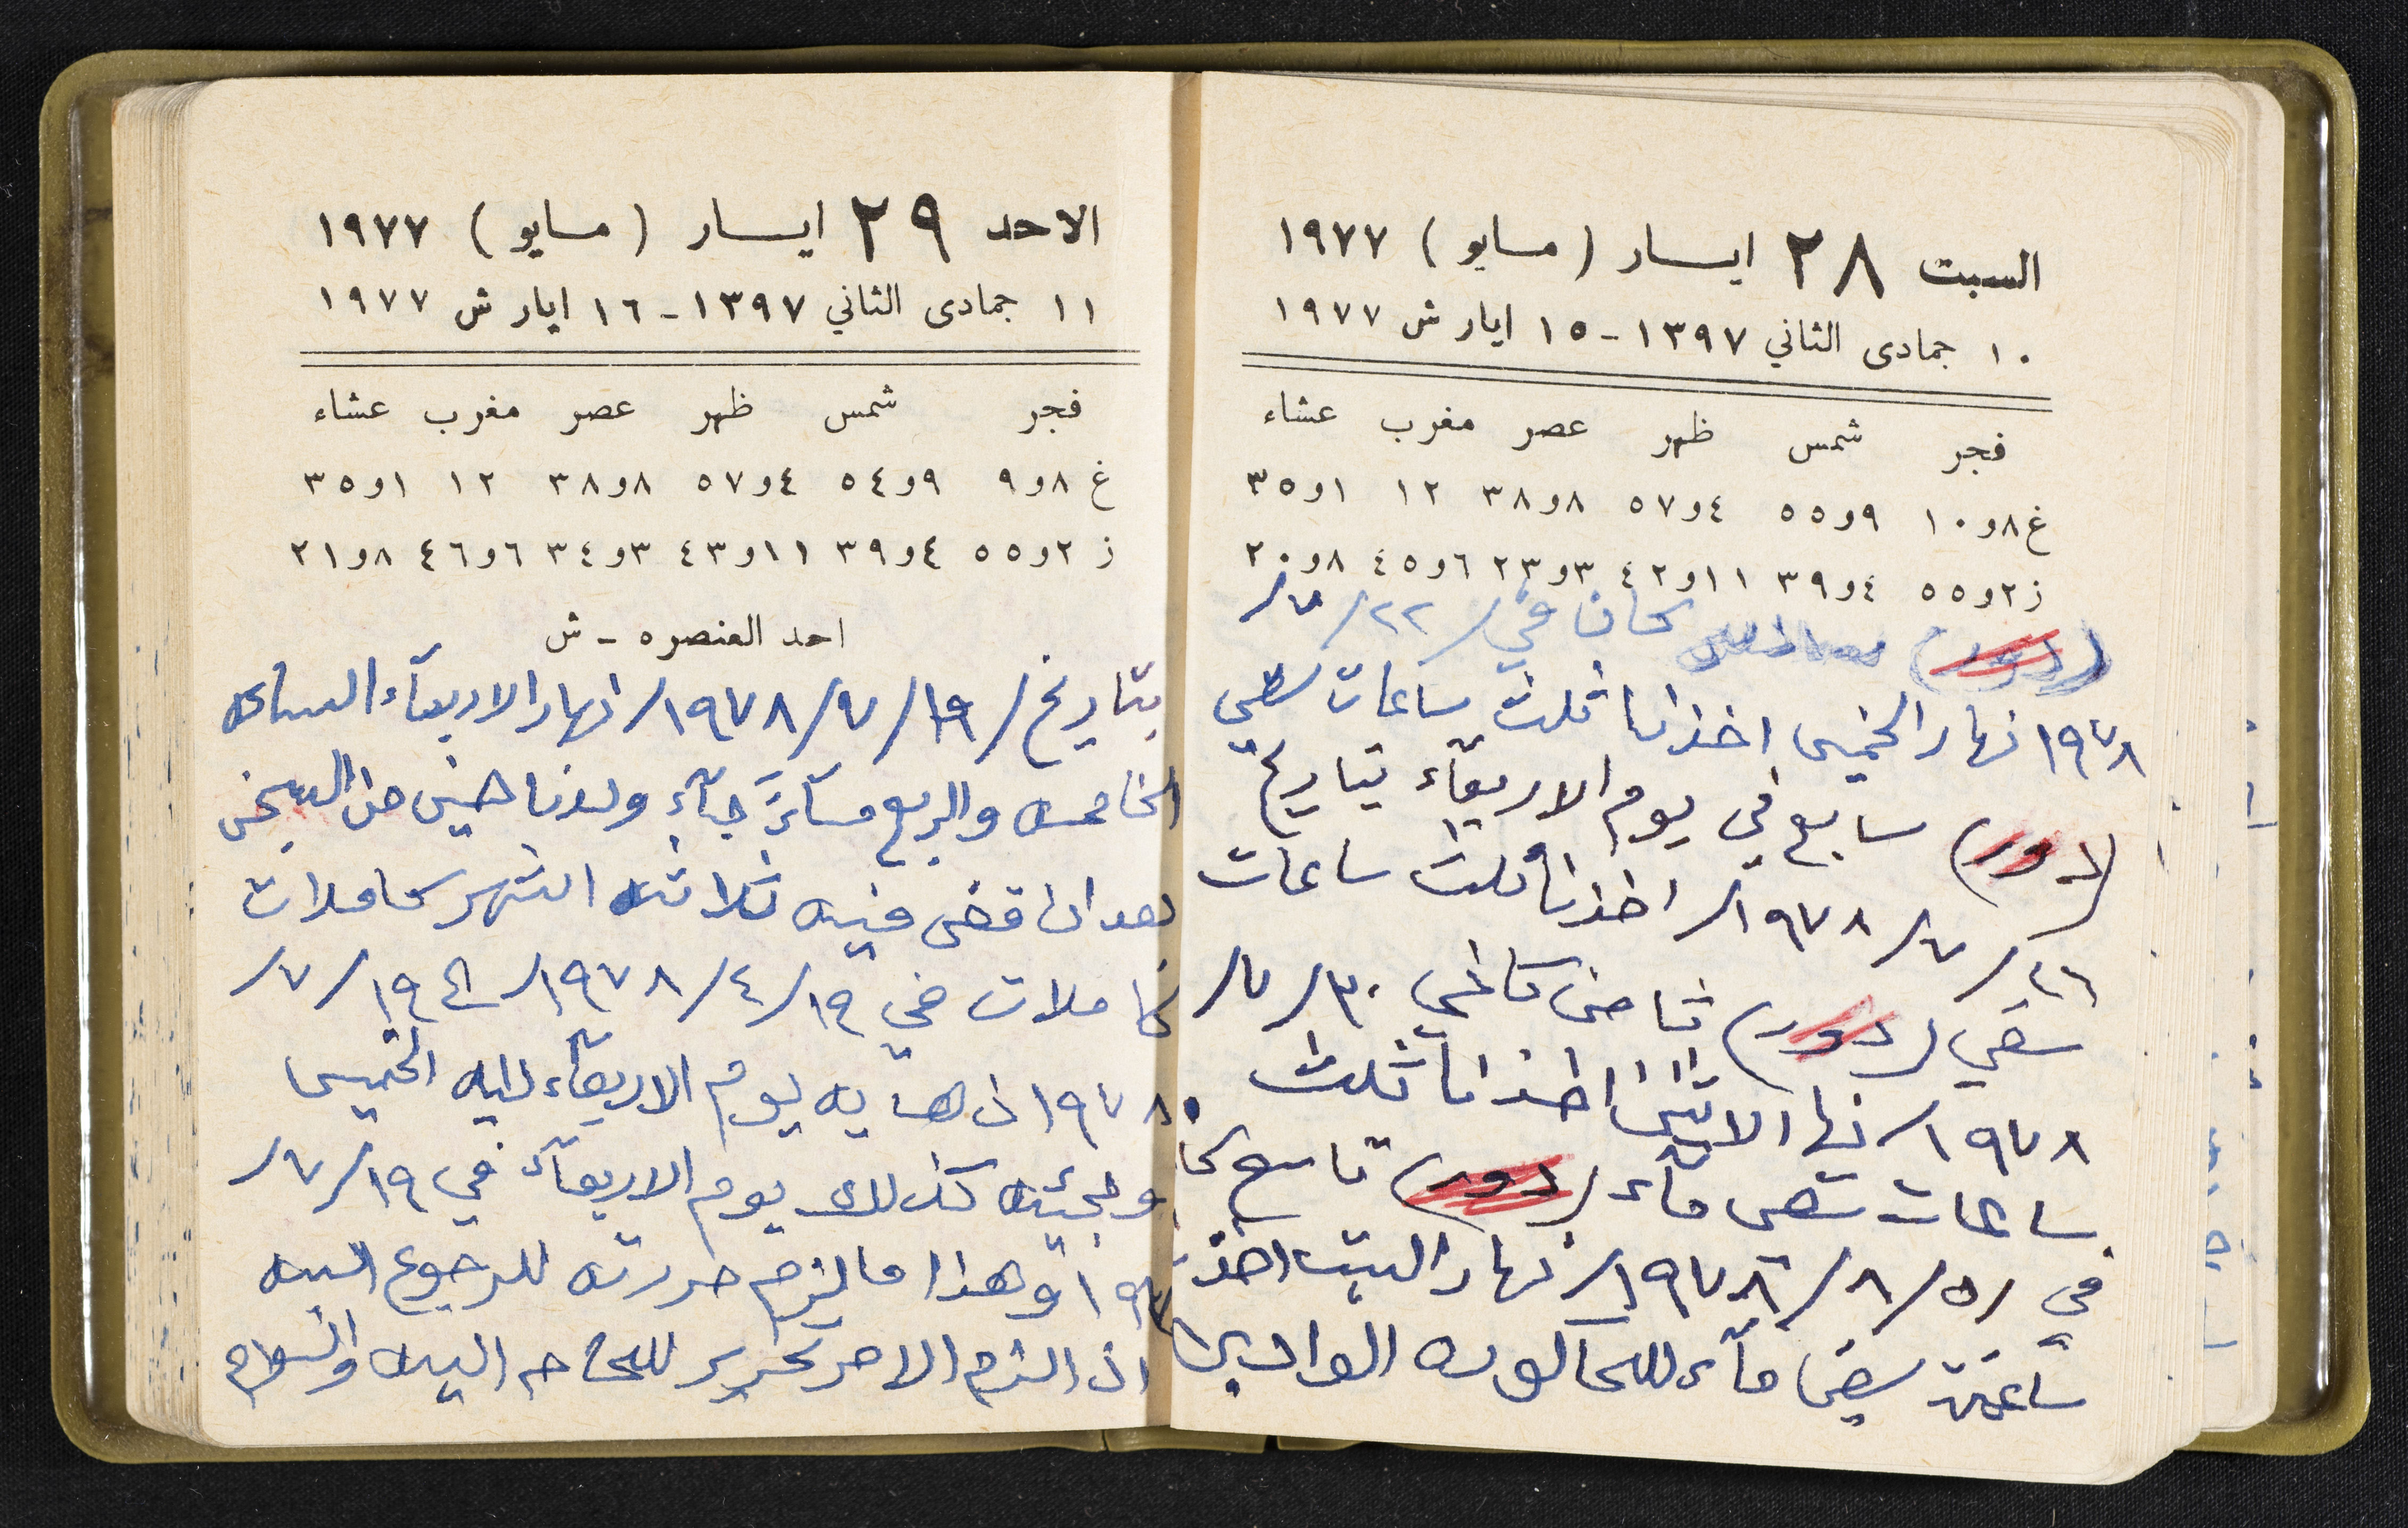 السبت ٢٨ ايسار (مسايو) ١٩٧٧
١٠ جمادى الثاني ١٣٩٧ - ١٥ ايار ش ١٩٧٧
فجر شمس ظهر عصر مغرب عشاء
غ ٨و١٠ ٩و٥٥ ٤و٥٧ ٨و٣٨ ١٢ ١و٣٥
ز ٢و٥٥ ٤و٣٩ ١١و٤٢ ٣و٢٣ ٦و٤٥ ٨و٢٠
(دور) سادس كان في /٢٢/٧/
١٩٧٨ نهار الخميس اخذنا ثلث ساعات سقي
(دور) سابع في يوم الاربعآء بتاريخ
٢٦/٧/١٩٧٨/ اخذنا ثلث ساعات
سقي (دور) ثامن كافي ٣٠/٧/
١٩٧٨/ نها الاثنين اخذنا ثلث
ساعات سقي مآء (دور) تاسع كا
في ٥/٨/١٩٧٨/ نهار السبت اخذت
ساعة سقي مآء للحاكوره الوادي
الاحد ٢٩ ايسار (مسايو) ١٩٧٧
١١ جمادى الثاني ١٣٩٧ - ١٦ ايار ش ١٩٧٧
فجر شمس ظهر عصر مغرب عشاء
غ ٨و٩ ٩و٥٤ ٤و٥٧ ٨و٣٨ ١٢ ١و٣٥
ز ٢و٥٥ ٤و٣٩ ١١و٤٣ ٣و٣٤ ٦و٤٦ ٨و٢١
احد العنصره - ش
بتاريخ /١٩/٧/١٩٧٨/ نهار الاربعآء الساعه
الخامسه والربع مسآءً جآء ولدنا من السجن
بعد ان قضى فيه ثلاثه اشهر كاملات
كاملات في ١٩/٤/١٩٧٨/ الى ١٩/٧/
١٩٧٨ ذهابه يوم الاربعآء ليله الخميس
ومجيئه كذلك يوم الاربعآء في ١٩/٧/
١٩٧ وهذا ما لزم حررته للرجوع اليه
اذا لزم الامر تحرير للحاجه اليه والسلام